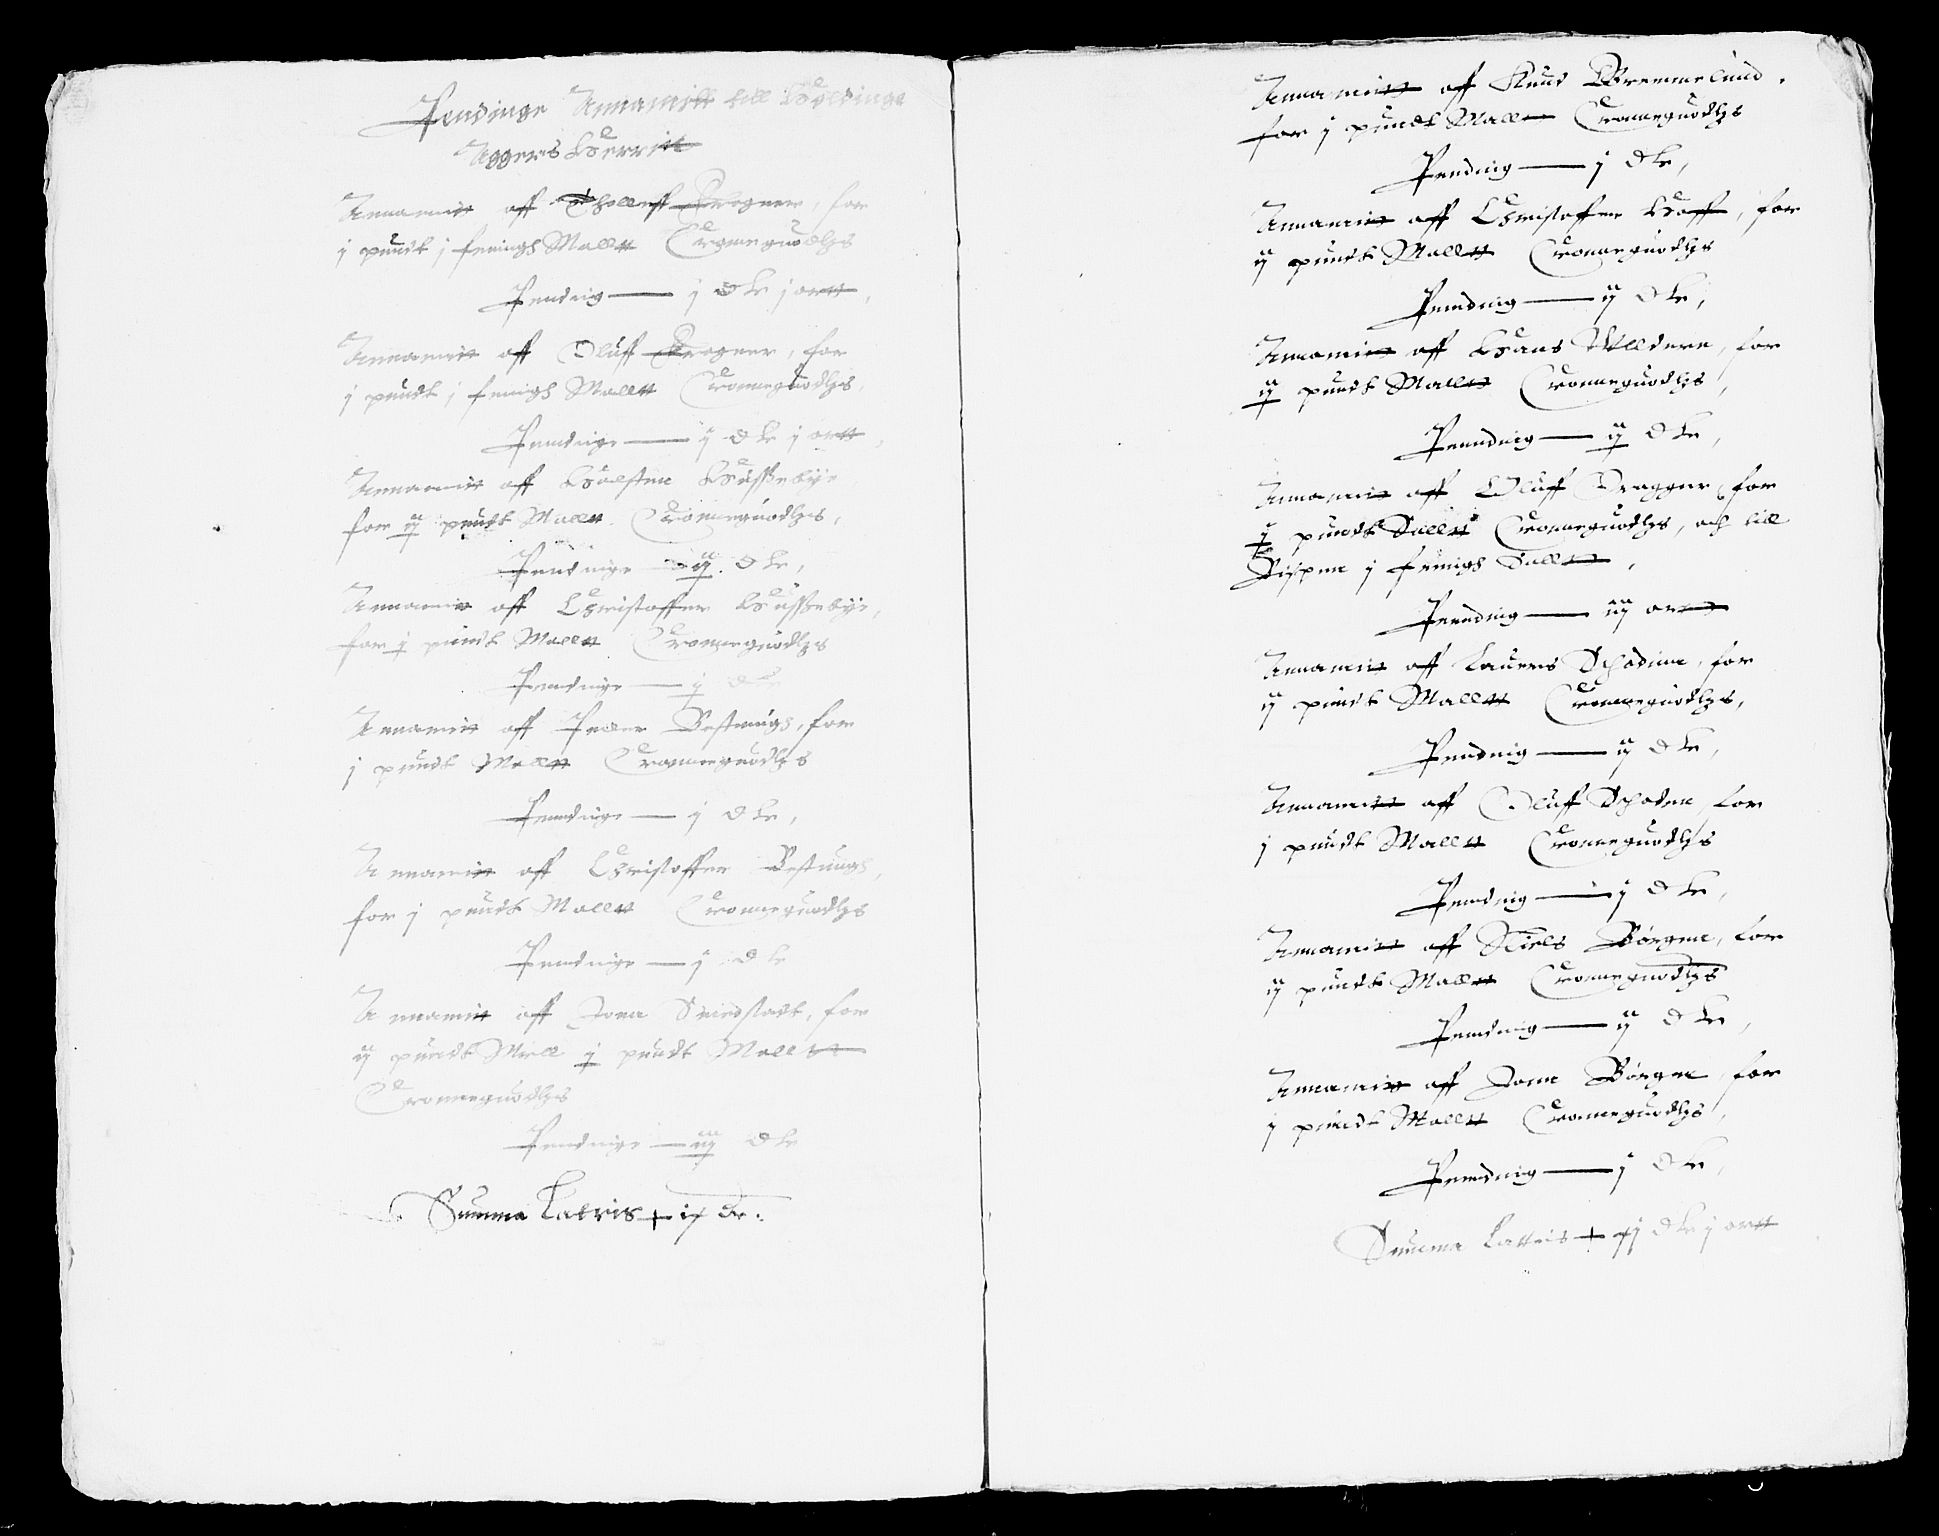 Pendinge Annamitt till Høldinge
Aggers Herritt
Annamitt aff Tholleff Dragner, for
j pundt j fering Malltt Cronneguodtz
Pending — j dlr j ortt,
Annamitt aff Oluff Dragner, for
j pundt j fering Malltt Cronneguodtz,
Pendinge — j dlr j ortt,
Annamitt aff Holsten Hussebye
for ij pundt Malltt Cronneguodtz,
Pendinge — ij dlr,
Annamitt aff Christoffer Hussebye,
for j pundt Malltt Cronneguodtz
Pendinge — j dlr
Annamitt aff Peder Bestung, for
j pundt Malltt Cronneguodtz
Pendinge — j dlr,
Annamitt aff Christoffer Bestung,
for j pundt Malltt Cronneguodtz
Pendinge — j dlr
Annamitt aff Joen Smedstadt, for
ij pundt Miell j pundt Malltt
Cronneguodtz
Pendinge — iij dlr
Summa Lateris
Annamitt aff Knud Bremmelund,
for j pundt Malltt Cronneguodtz
Pending — j dlr,
Annamitt aff Christoffer Hoff, for
ij pundt Malltt Cronneguodtz
Pending — ij dlr,
Annamitt aff Hans, for
ij pundt Malltt Cronneguodtz,
Pending — ij dlr,
Annamitt aff Oluff Dragger, for
j pundt Salltt Cronneguodtz, och till
Bispen j fering Salltt,
Pending — iij ortt
Annamitt aff Lauers Schøden, for
ij pundt Malltt Cronneguodtz,
Pending — ij dlr,
Annamitt aff Oluff Schøden, for
j pundt Malltt Cronneguodtz
Pending — j dlr,
Annamitt aff Niels Børgen, for
ij pundt Malltt Cronneguodtz
Pending — ij dlr,
Annamitt aff Joen Børgen, for
j pundt Malltt Cronneguodtz,
Pending — j dlr,
Summa Lateris dlr j ortt